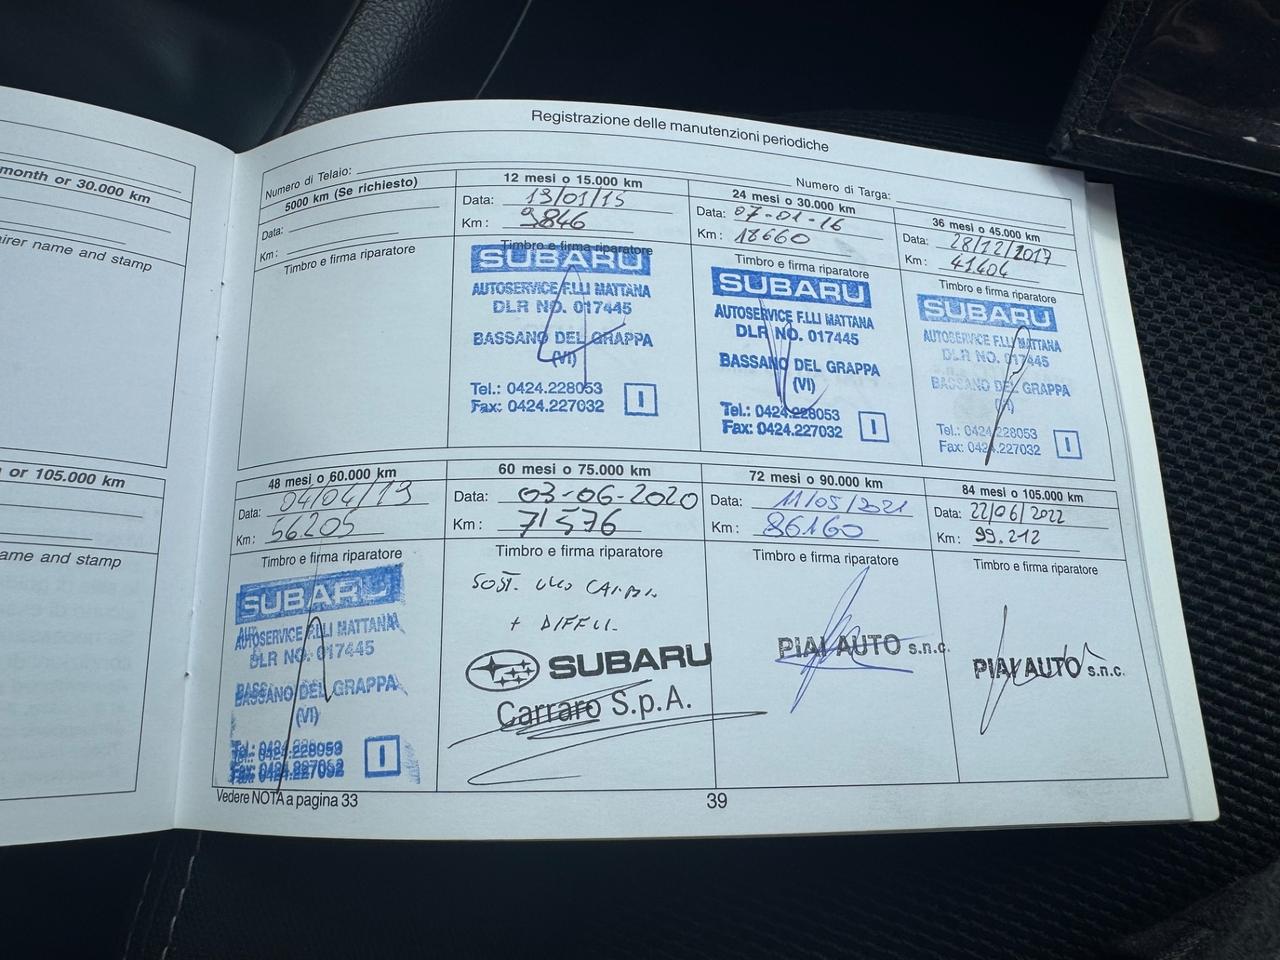 month or 30.000 km
airer name and stamp
n or 105.000 km
ame and stamp
Registrazione delle manutenzioni periodiche
Numero di Telaio:
Numero di Targa:
5000 km (Se richiesto)
Data:
Km :
Timbro e firma riparatore
12 mesi o 15.000 km
Data: 13/01/15
Km : 9846
Timbro e firma riparatore
SUBARU
AUTOSERVICE F.LLI MATTANA
DLR NO. 017445
BASSANO DEL GRAPPA
(VI)
Tel.: 0424.228053
Fax: 0424.227032
I
24 mesi o 30.000 km
Data: 07-01-16
Km : 18660
Timbro e firma riparatore
SUBARU
AUTOSERVICE F.LLI MATTANA
DLR NO. 017445
BASSANO DEL GRAPPA
(VI)
Tel.: 0424.228053
Fax: 0424.227032
I
36 mesi o 45.000 km
Data: 28/12/2017
Km : 41404
Timbro e firma riparatore
SUBARU
AUTOSERVICE F.LLI MATTANA
DLR NO. 017445
BASSANO DEL GRAPPA
(VI)
Tel.: 0424.228053
Fax: 0424.227032
I
48 mesi o 60.000 km
Data: 04/04/19
Km : 56205
Timbro e firma riparatore
SUBARU
AUTOSERVICE F.LLI MATTANA
DLR NO. 017445
BASSANO DEL GRAPPA
(VI)
Tel.: 0424.228053
Fax: 0424.227032
I
60 mesi o 75.000 km
Data: 03-06-2020
Km : 71576
Timbro e firma riparatore
SOST.
+ DIFF
SUBARU
Carraro S.p.A.
72 mesi o 90.000 km
Data: 11/05/2021
Km : 86160
Timbro e firma riparatore
PIAI AUTO s.n.c.
84 mesi o 105.000 km
Data: 22/06/2022
Km : 99.212
Timbro e firma riparatore
PIAI AUTO s.n.c.
Vedere NOTA a pagina 33
39